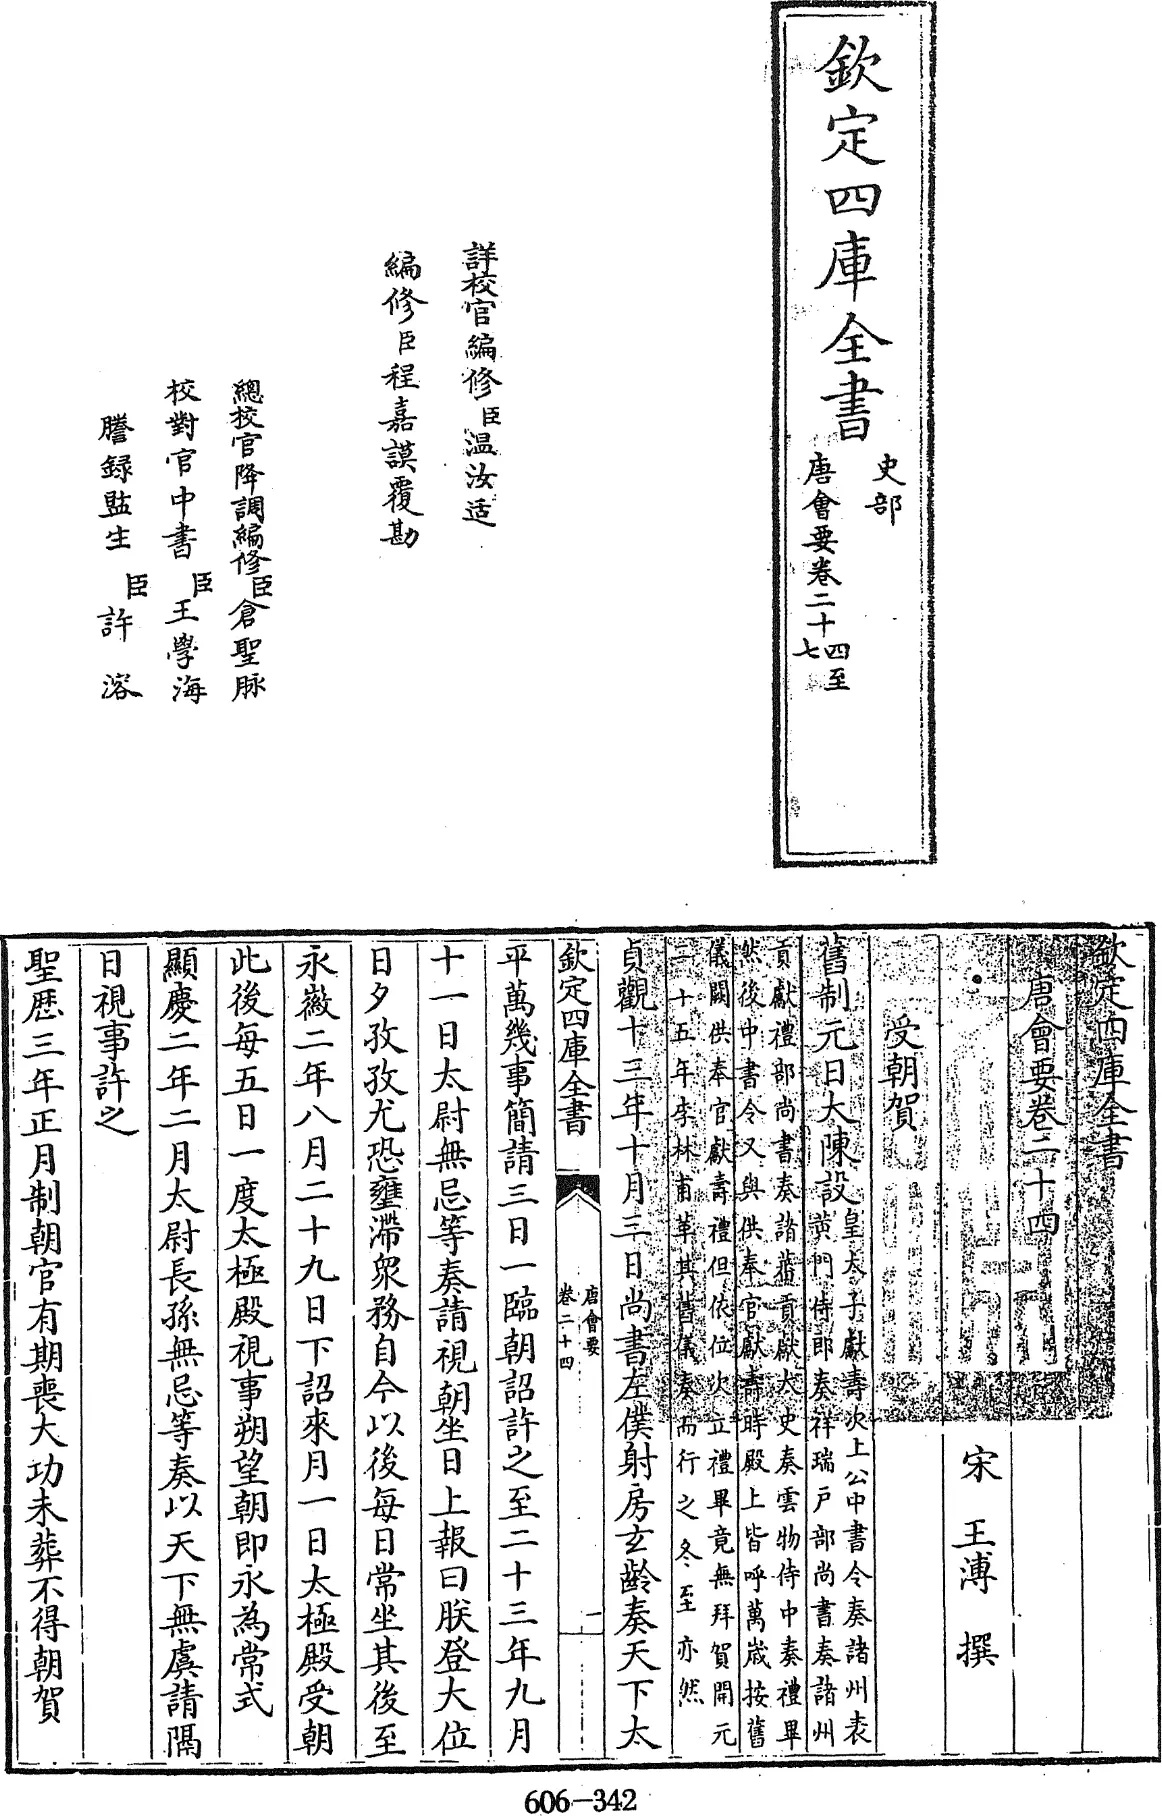 欽定四庫全書
史部
唐會要卷二十四至
七
詳校官編修臣温汝适
編修臣程嘉謨覆勘
總校官降調編修臣倉聖脉
校對官中書臣王學海
謄録監生臣許溶
欽定四庫全書
唐會要卷二十四
宋 王溥 撰
受朝賀
舊制元日大陳設皇太子獻壽次上公中書令奏諸州表
黄門侍郎奏祥瑞戸部尚書奏諸州
貢獻禮部尚書奏諸蕃貢獻太史奏雲物侍中奏禮畢
然後中書令又與供奉官獻壽時殿上皆呼萬嵗按舊
儀闕供奉官獻壽禮但依位次立禮畢竟無拜賀開元
二十五年李林甫革其舊儀奏而行之冬至亦然
貞觀十三年十月三日尚書左僕射房玄齡奏天下太
欽定四庫全書
唐會要
卷二十四
一
平萬幾事簡請三日一臨朝詔許之至二十三年九月
十一日太尉無忌等奏請視朝坐日上報曰朕登大位
日夕孜孜尤恐壅滯衆務自今以後每日常坐其後至
永徽二年八月二十九日下詔來月一日太極殿受朝
此後每五日一度太極殿視事朔望朝即永為常式
顯慶二年二月太尉長孫無忌等奏以天下無虞請隔
日視事許之
聖歴三年正月制朝官有期喪大功未葬不得朝賀
606-342